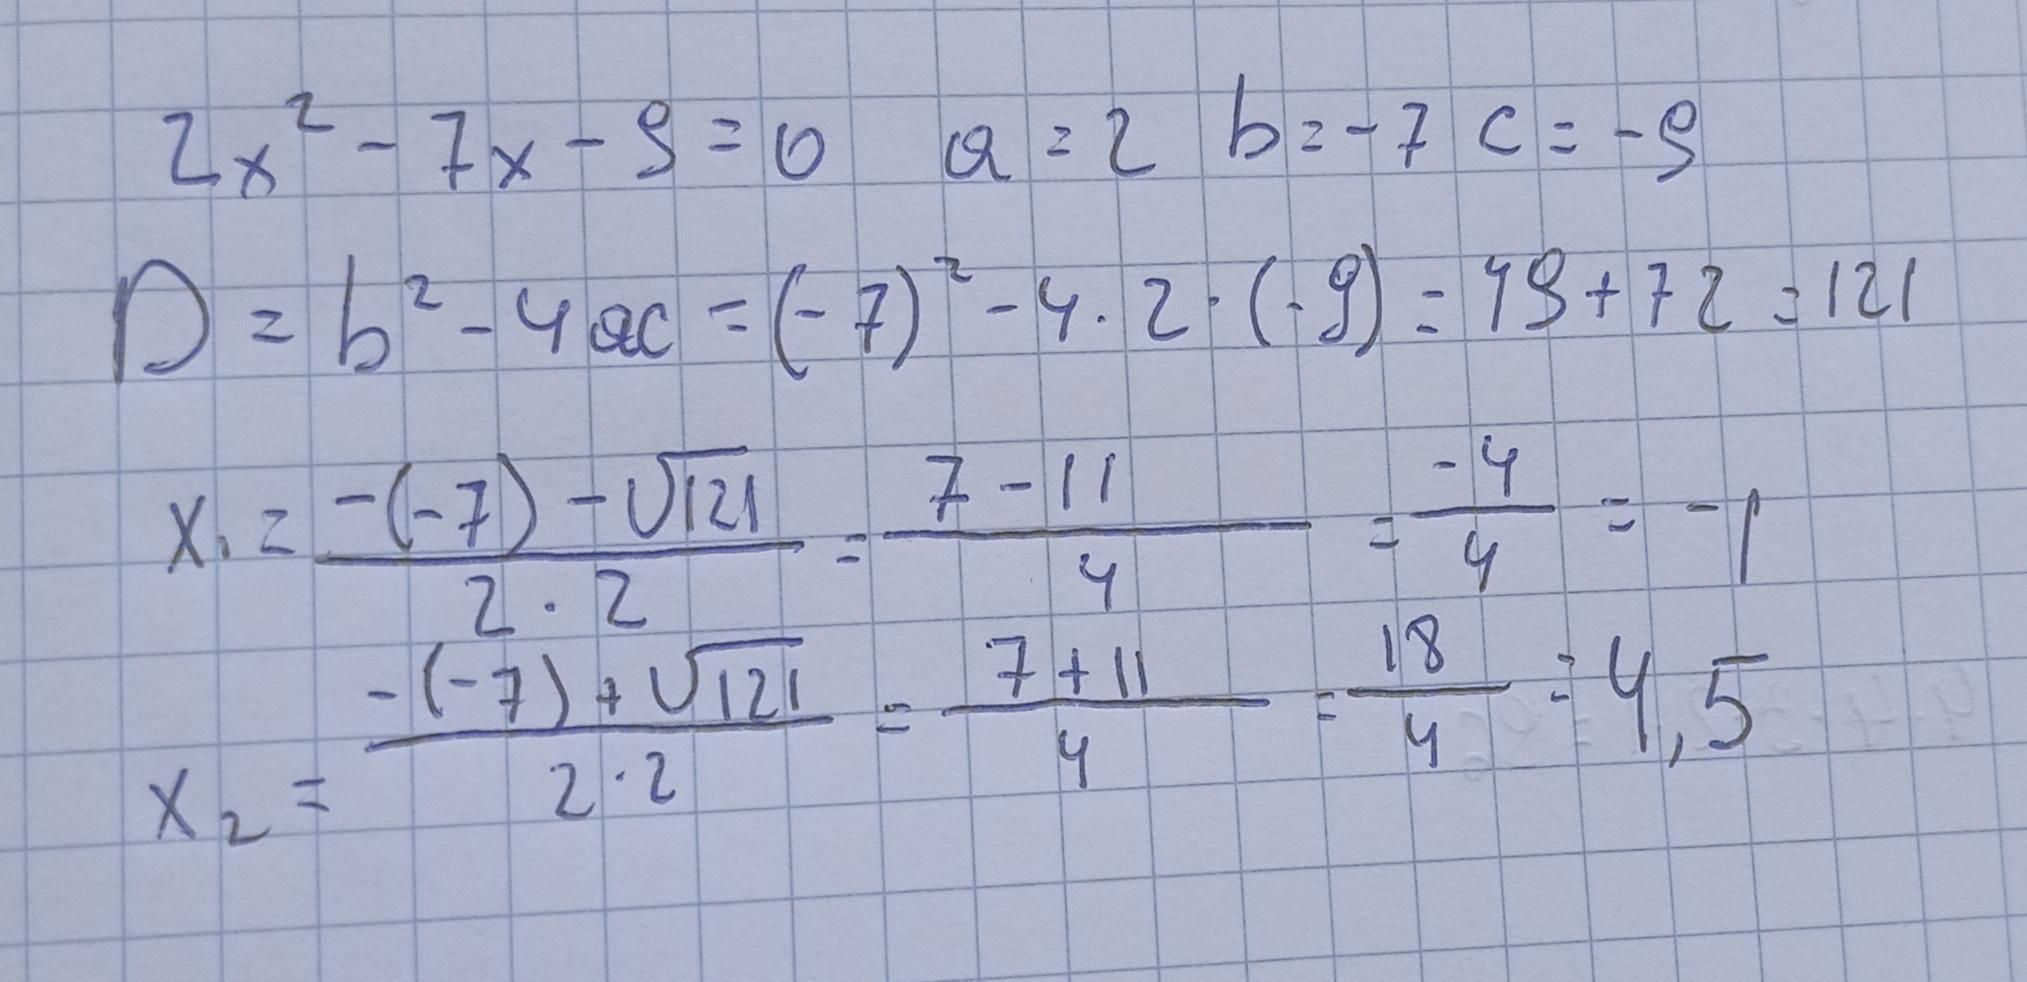 2x² - 7x - 9 = 0 a = 2 b = -7 c = -9
D = b² - 4ac = (-7)² - 4 · 2 · (-9) = 49 + 72 = 121
x₁ = (-(-7) - √121) / (2 · 2) = (7 - 11) / 4 = -4 / 4 = -1
x₂ = (-(-7) + √121) / (2 · 2) = (7 + 11) / 4 = 18 / 4 = 4,5